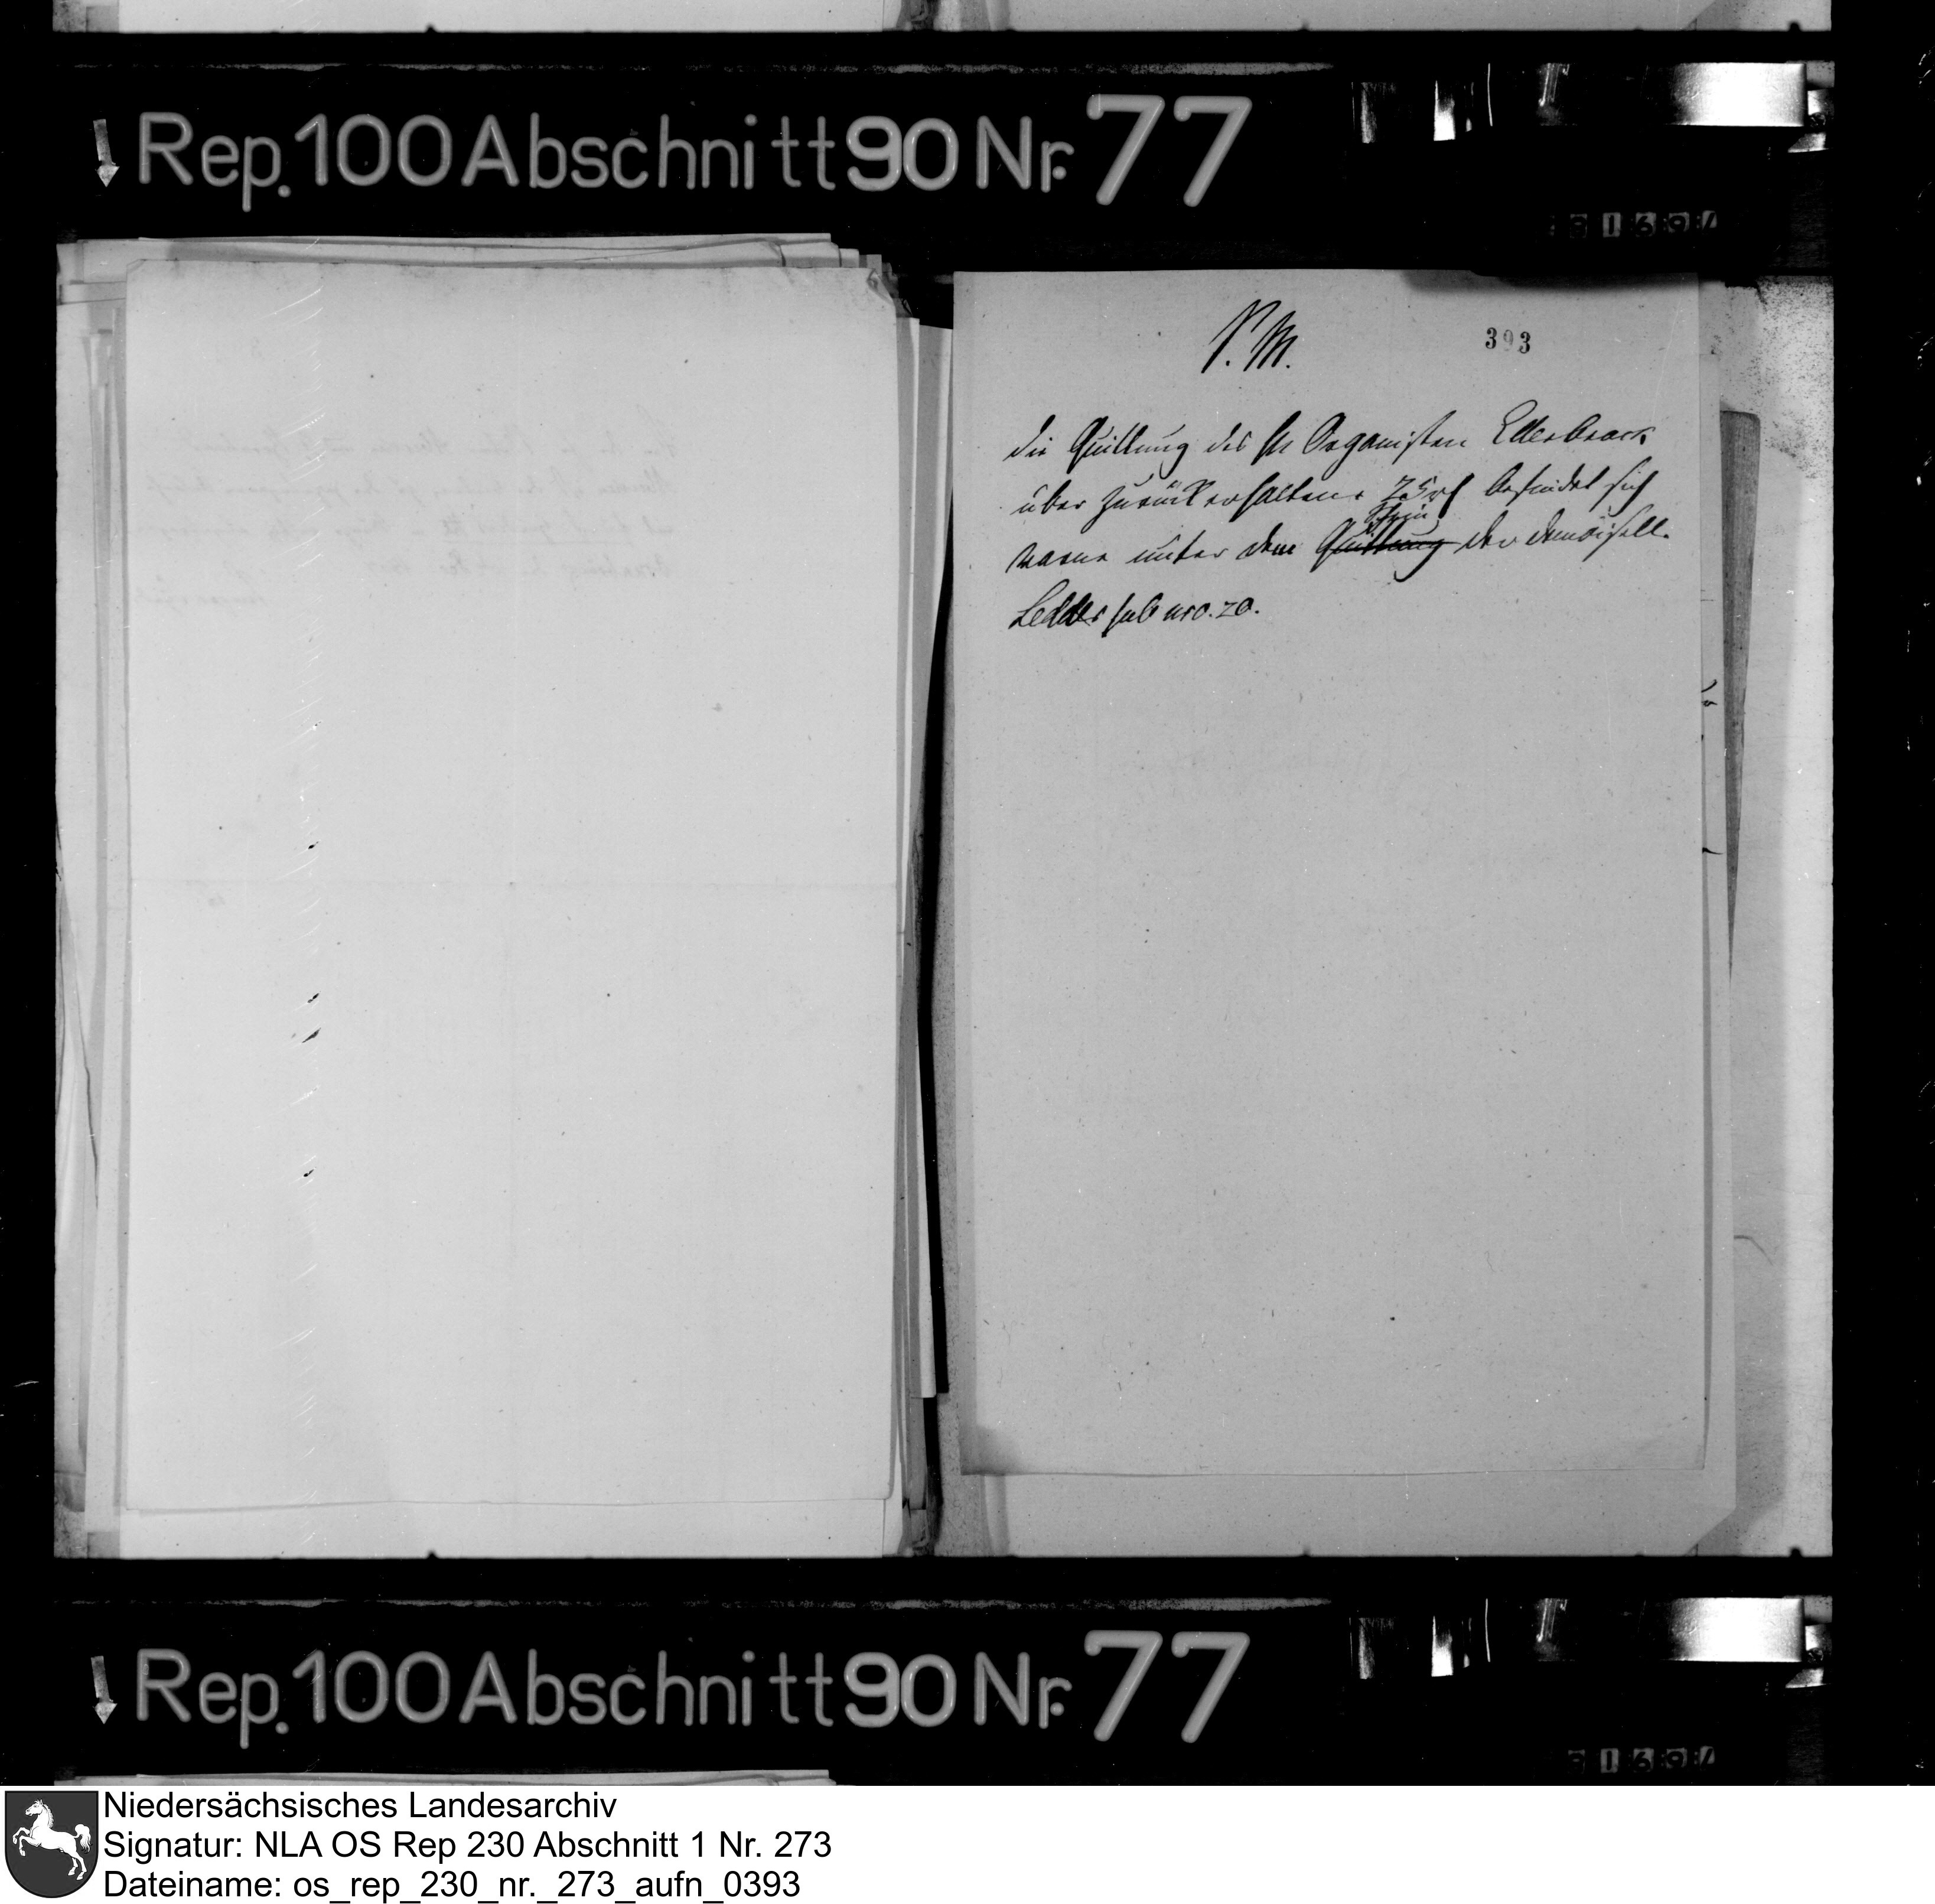 Rep. 100 Abschnitt 90 Nr. 77
P. M.
393
die Quittung des Hr Organisten Ellerbrock
über zurück erhaltene 25 rt befindet sich
vorne unter dem Schein der demoisell.
Ledder sub nro. 20.
Rep. 100 Abschnitt 90 Nr. 77
Niedersächsisches Landesarchiv
Signatur: NLA OS Rep 230 Abschnitt 1 Nr. 273
Dateiname: os_rep_230_nr._273_aufn_0393